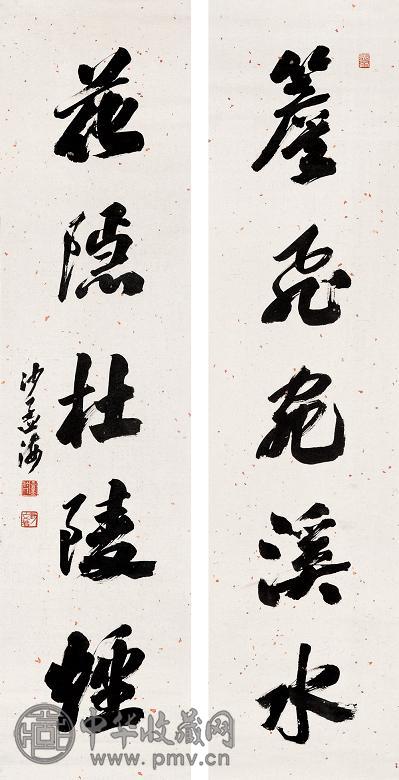 簷飛宛溪水
花隱杜陵煙
沙孟海
中华收藏网
www.pmv.cn